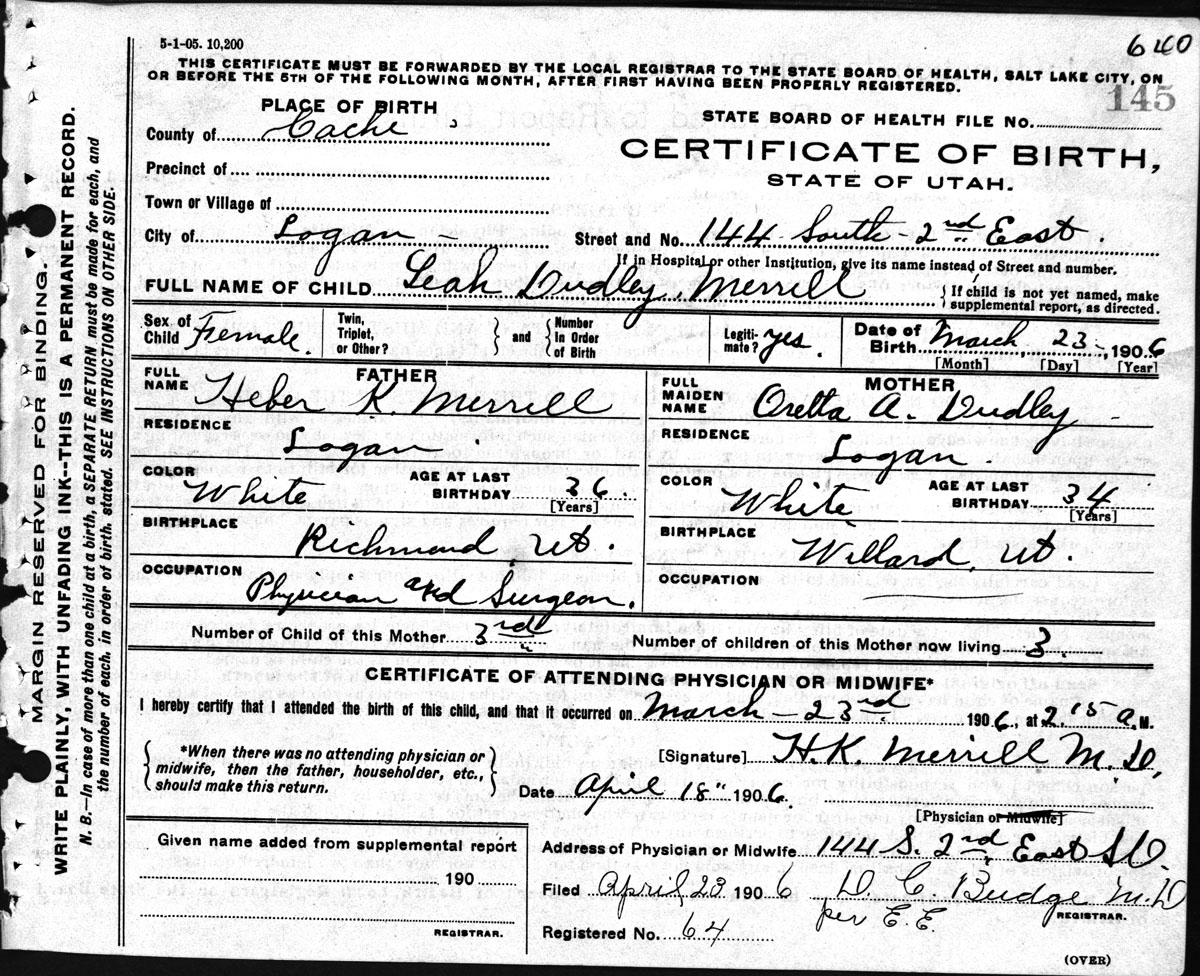 640
5-1-05. 10,200
THIS CERTIFICATE MUST BE FORWARDED BY THE LOCAL REGISTRAR TO THE STATE BOARD OF HEALTH, SALT LAKE CITY, ON
OR BEFORE THE 5TH OF THE FOLLOWING MONTH, AFTER FIRST HAVING BEEN PROPERLY REGISTERED.
145
PLACE OF BIRTH
STATE BOARD OF HEALTH FILE No.
County of Cache
CERTIFICATE OF BIRTH,
Precinct of
STATE OF UTAH.
Town or Village of
City of Logan - Street and No. 144 South - 2nd East.
If in Hospital or other Institution, give its name instead of Street and number.
FULL NAME OF CHILD Leah Dudley Merrill { If child is not yet named, make
supplemental report, as directed.
Sex of Child Female. Twin, Triplet, or Other? } and { Number In Order of Birth Legiti-mate? yes. Date of Birth March 23-, 1906
[Month] [Day] [Year]
FATHER MOTHER
FULL NAME Heber K. Merrill FULL MAIDEN NAME Oretta A. Dudley -
RESIDENCE Logan RESIDENCE Logan.
COLOR White AGE AT LAST BIRTHDAY 36. [Years] COLOR White AGE AT LAST BIRTHDAY 34 [Years]
BIRTHPLACE Richmond Ut. BIRTHPLACE Willard, Ut.
OCCUPATION Physician and Surgeon. OCCUPATION
Number of Child of this Mother 3rd Number of children of this Mother now living 3.
CERTIFICATE OF ATTENDING PHYSICIAN OR MIDWIFE*
I hereby certify that I attended the birth of this child, and that it occurred on March - 23rd 1906, at 2.15 A.M.
*When there was no attending physician or
midwife, then the father, householder, etc.,
should make this return.
[Signature] H. K. Merrill M. D.
Date April 18" 1906.
[Physician or Midwife]
Given name added from supplemental report
190
REGISTRAR.
Address of Physician or Midwife 144 S. 2nd East St.
Filed April, 20 1906 D. C. Budge M.D
per E. E.
REGISTRAR.
Registered No. 64
(OVER)
MARGIN RESERVED FOR BINDING.
WRITE PLAINLY, WITH UNFADING INK--THIS IS A PERMANENT RECORD.
N. B.—In case of more than one child at a birth, a SEPARATE RETURN must be made for each, and
the number of each, in order of birth, stated. SEE INSTRUCTIONS ON OTHER SIDE.